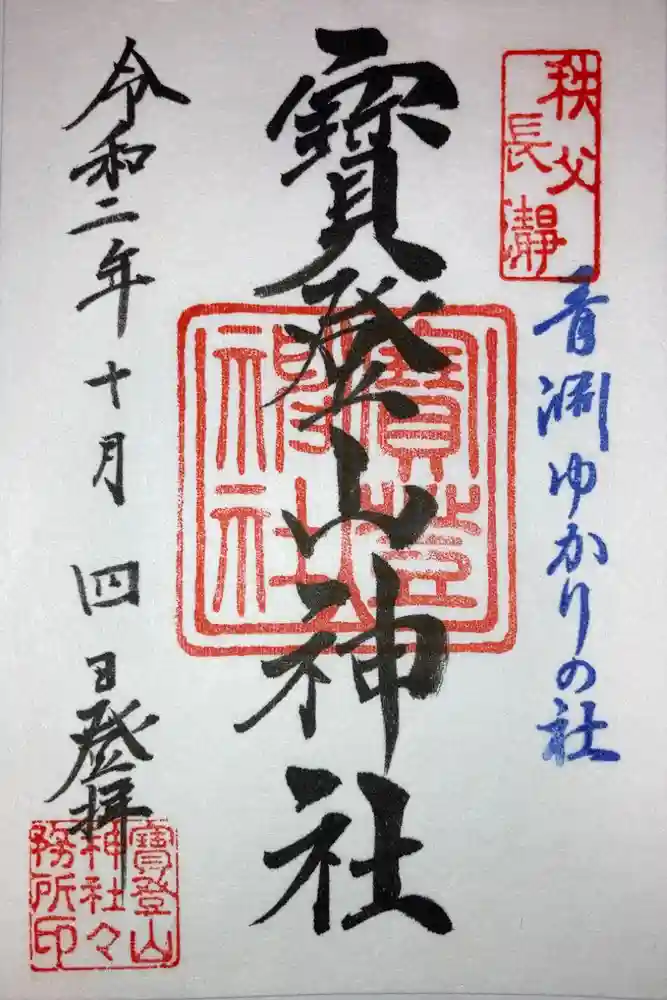 秩父
長瀞
青淵ゆかりの社
寶登山神社
令和二年十月四日登拝
寶登山
神社々
務所印